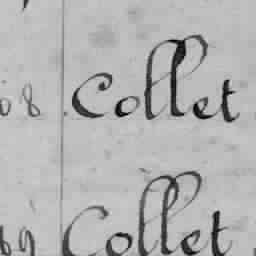 08 Collet
69 Collet